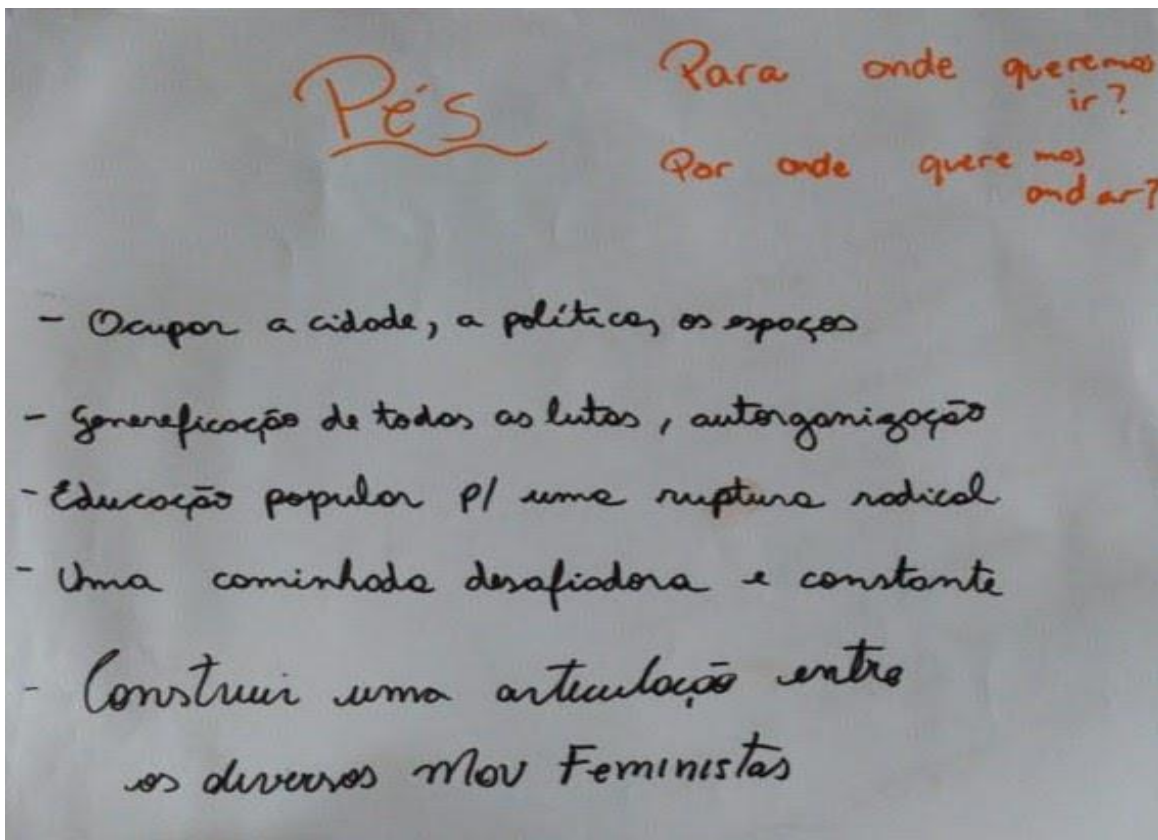 Pés
Para onde queremos
ir?
Por onde queremos
andar?
- Ocupar a cidade, a política, os espaços
- Genereficação de todas as lutas, autorganização
- Educação popular p/ uma ruptura radical
- Uma caminhada desafiadora e constante
- Construir uma articulação entre
os diversos Mov Feministas